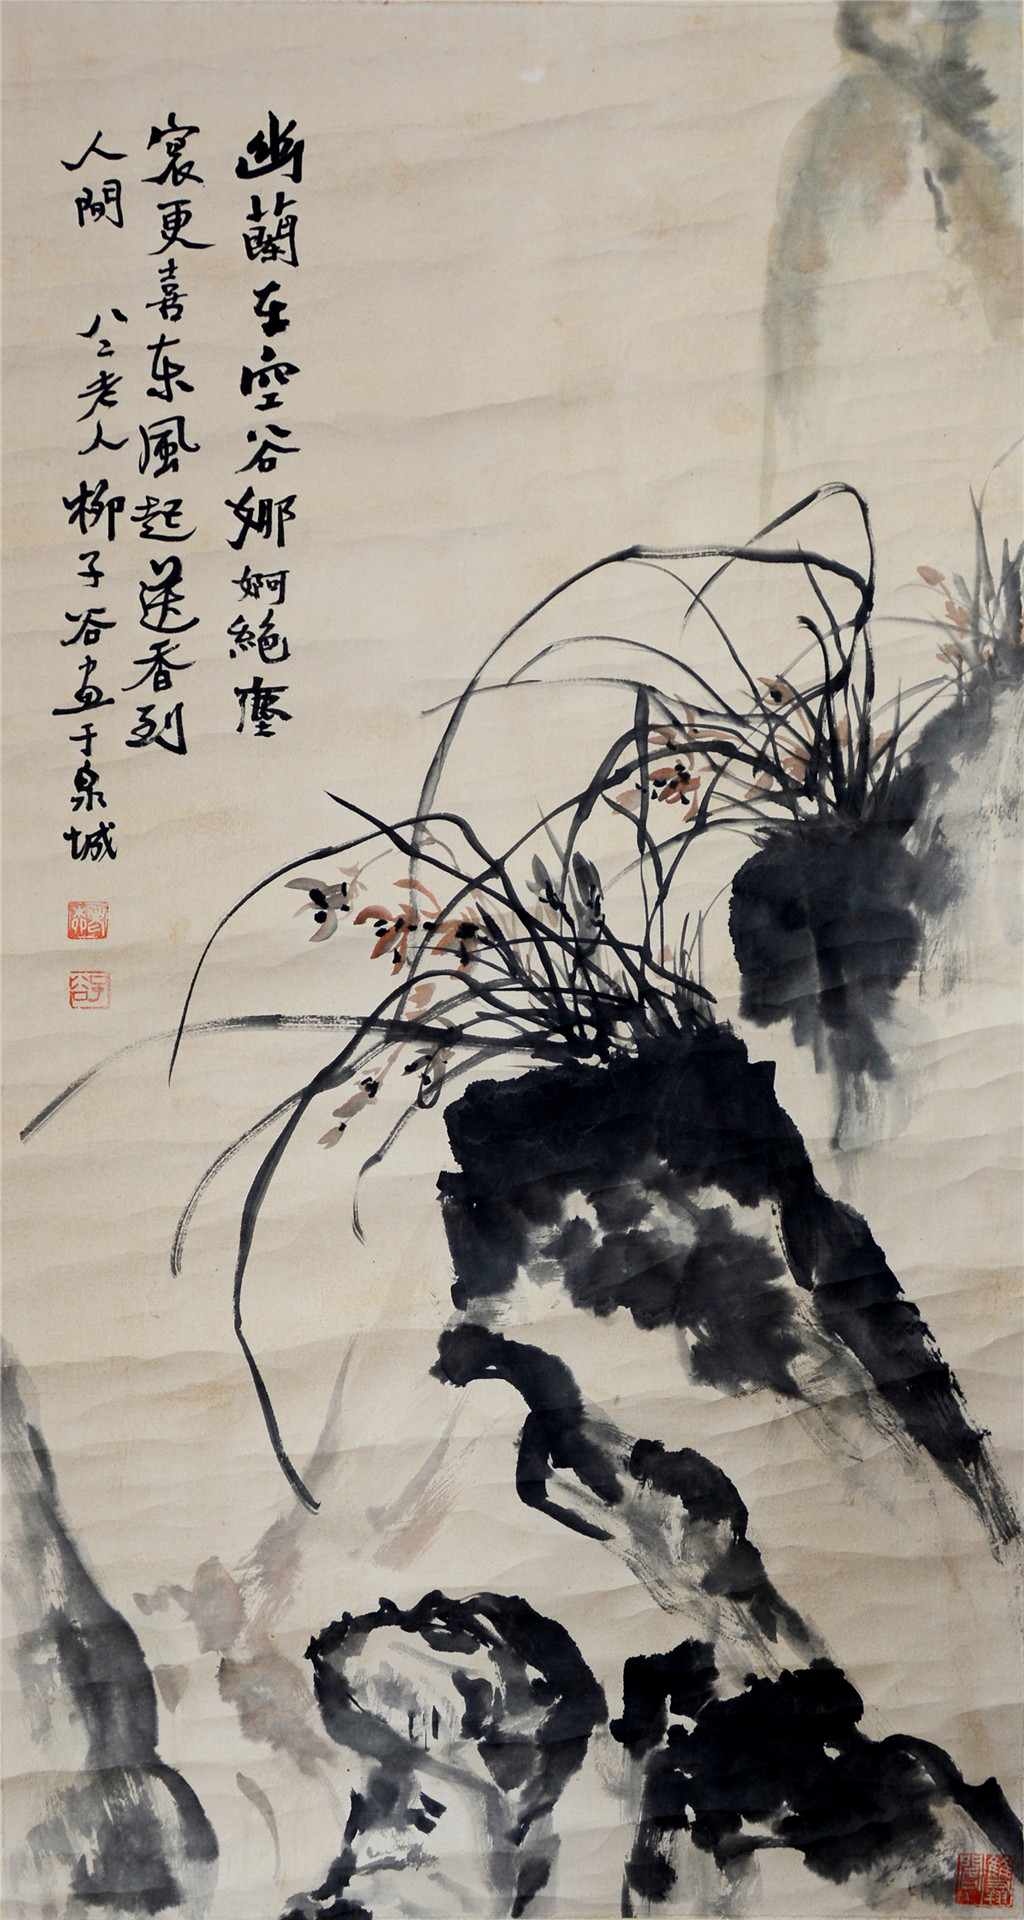 幽蘭在空谷娜婀絶塵
寰更喜东風起送香到
人間 八二老人柳子谷画于泉城
子谷